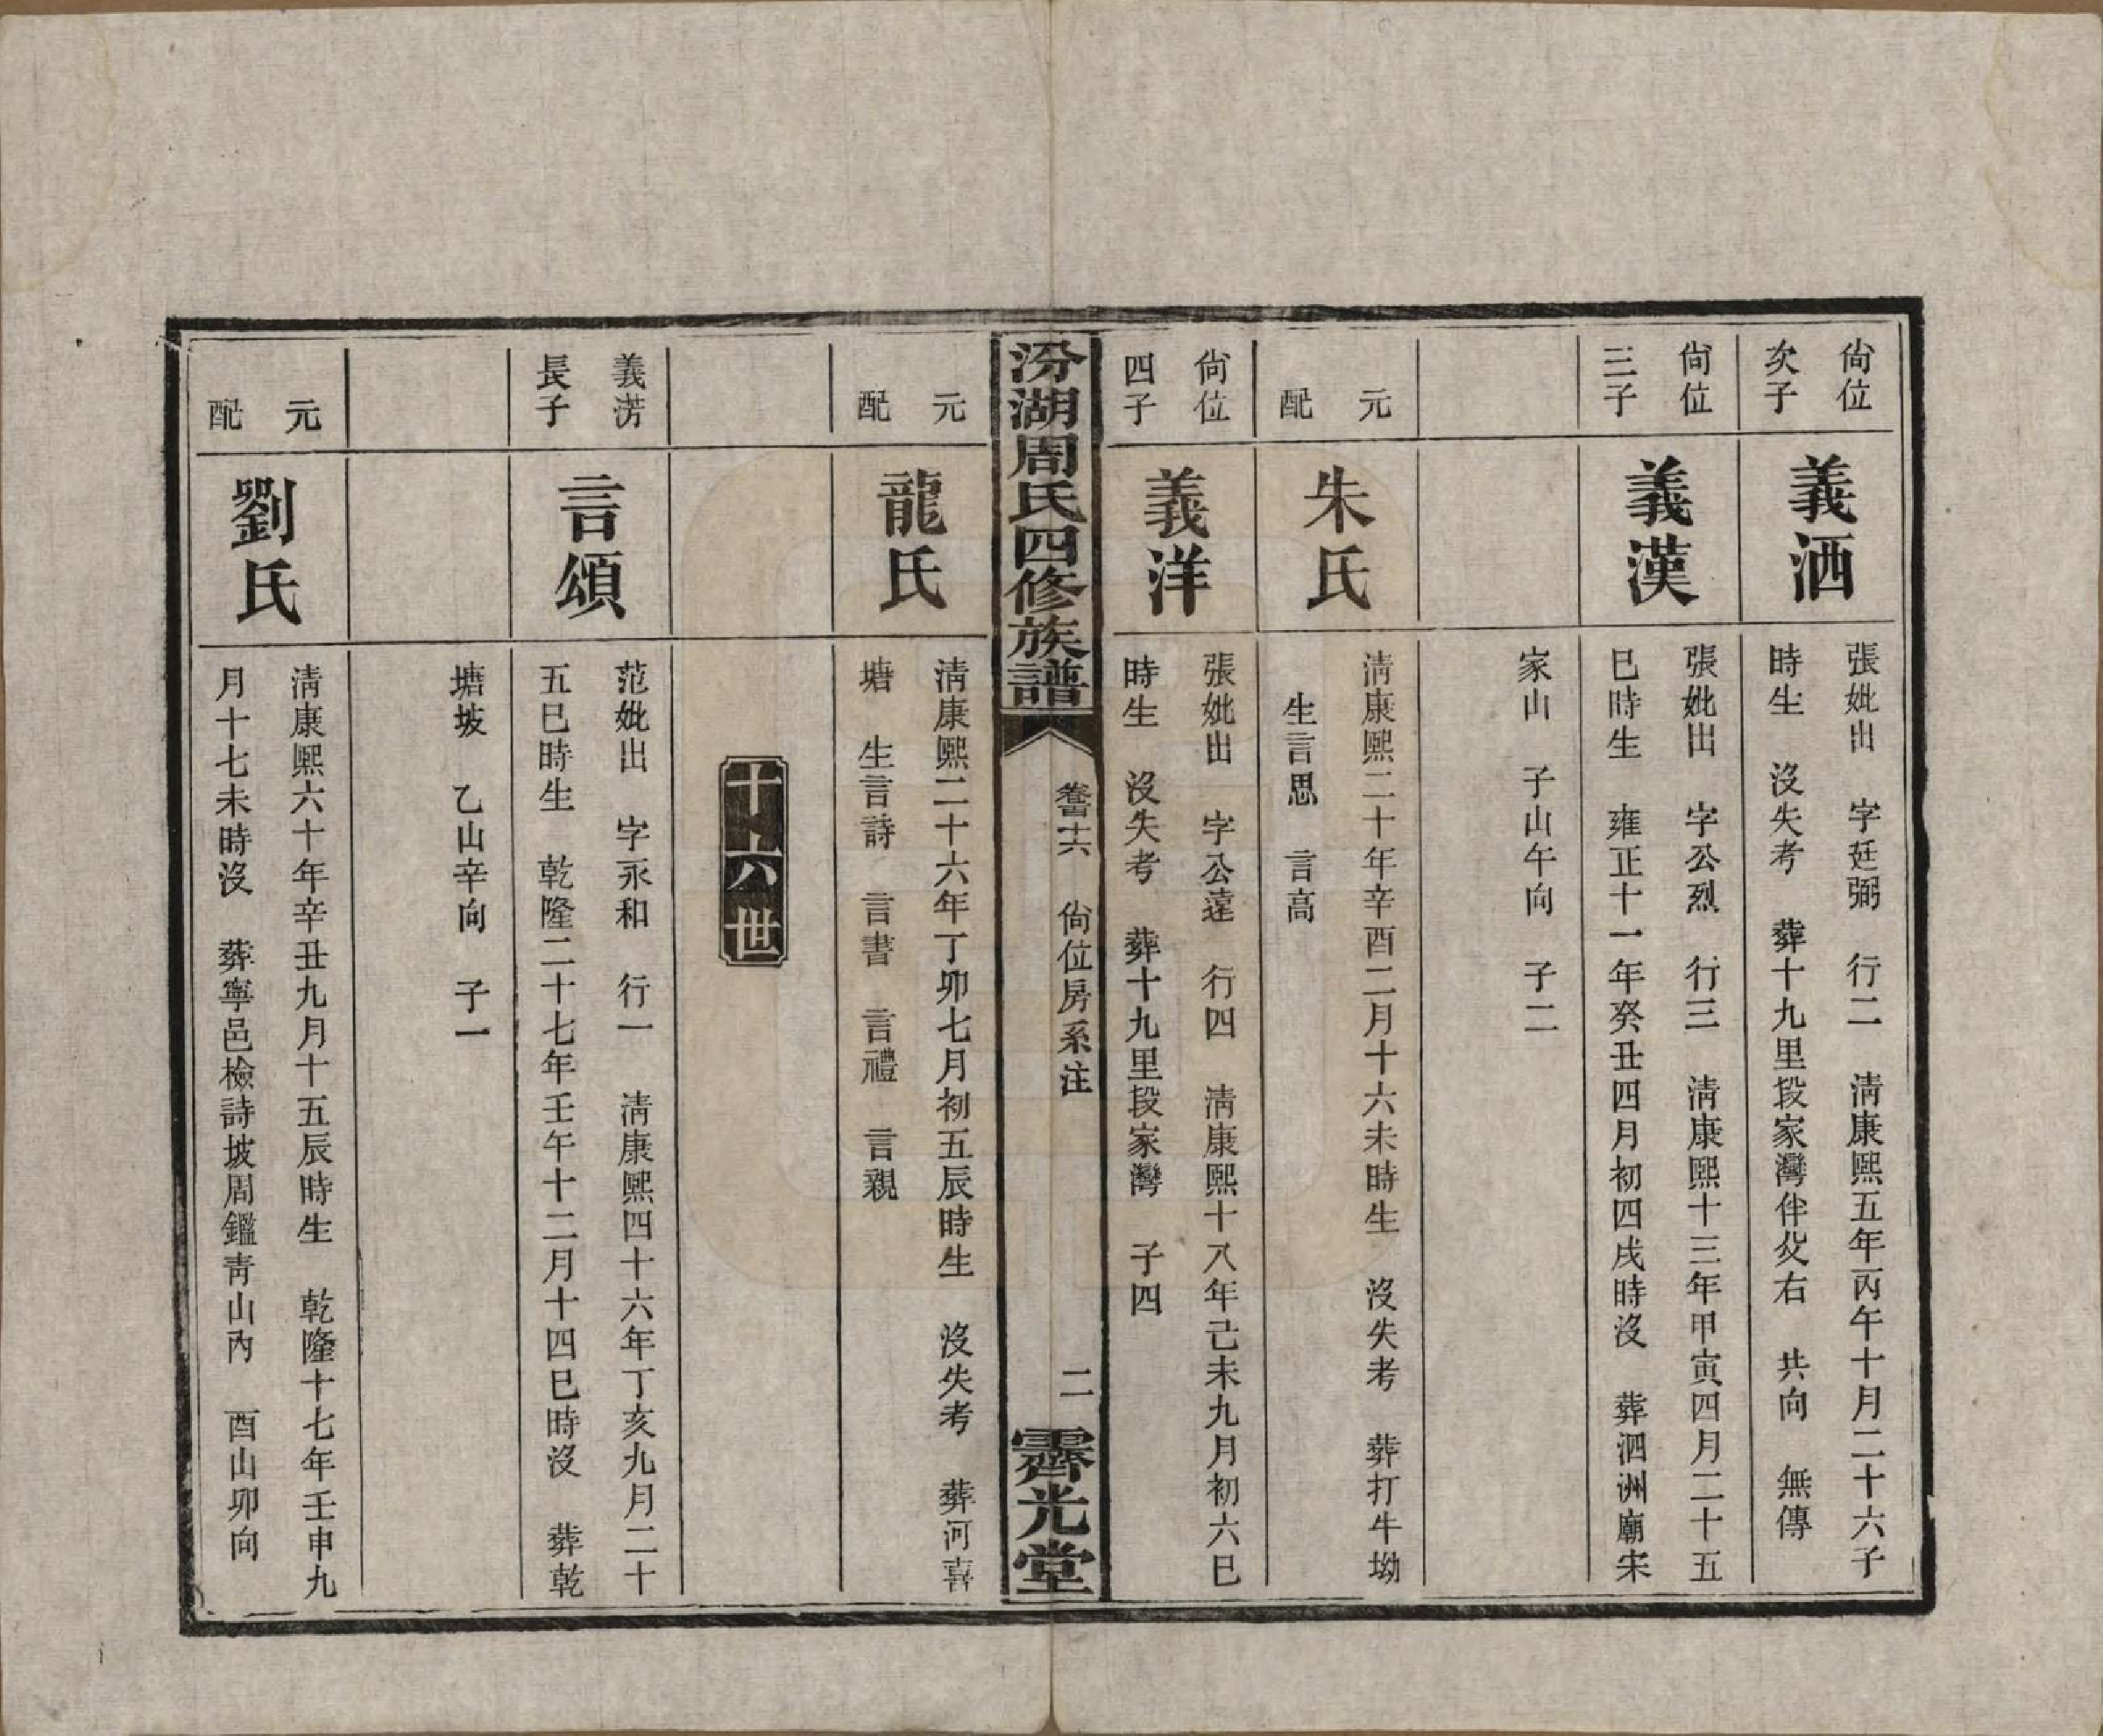 尙位
次子
義洒
張妣出　字廷弼　行二　淸康熙五年丙午十月二十六子
時生　沒失考　葬十九里段家灣伴父右　共向　無傳
尙位
三子
義漢
張妣出　字公烈　行三　淸康熙十三年甲寅四月二十五
巳時生　雍正十一年癸丑四月初四戌時沒　葬泗洲廟宋
家山　子山午向　子二
元
配
朱氏
淸康熙二十年辛酉二月十六未時生　沒失考　葬打牛坳
生言思　言高
尙位
四子
義洋
張妣出　字公遠　行四　淸康熙十八年己未九月初六巳
時生　沒失考　葬十九里段家灣　子四
汾湖周氏四修族譜
尙位房系注
二
霽光堂
元
配
龍氏
淸康熙二十六年丁卯七月初五辰時生　沒失考　葬河喜
塘　生言詩　言書　言禮　言親
十六世
義滂
長子
言頌
范妣出　字永和　行一　淸康熙四十六年丁亥九月二十
五巳時生　乾隆二十七年壬午十二月十四巳時沒　葬乾
塘坡　乙山辛向　子一
元
配
劉氏
淸康熙六十年辛丑九月十五辰時生　乾隆十七年壬申九
月十七未時沒　葬寧邑檢詩坡周鑑靑山內　酉山卯向